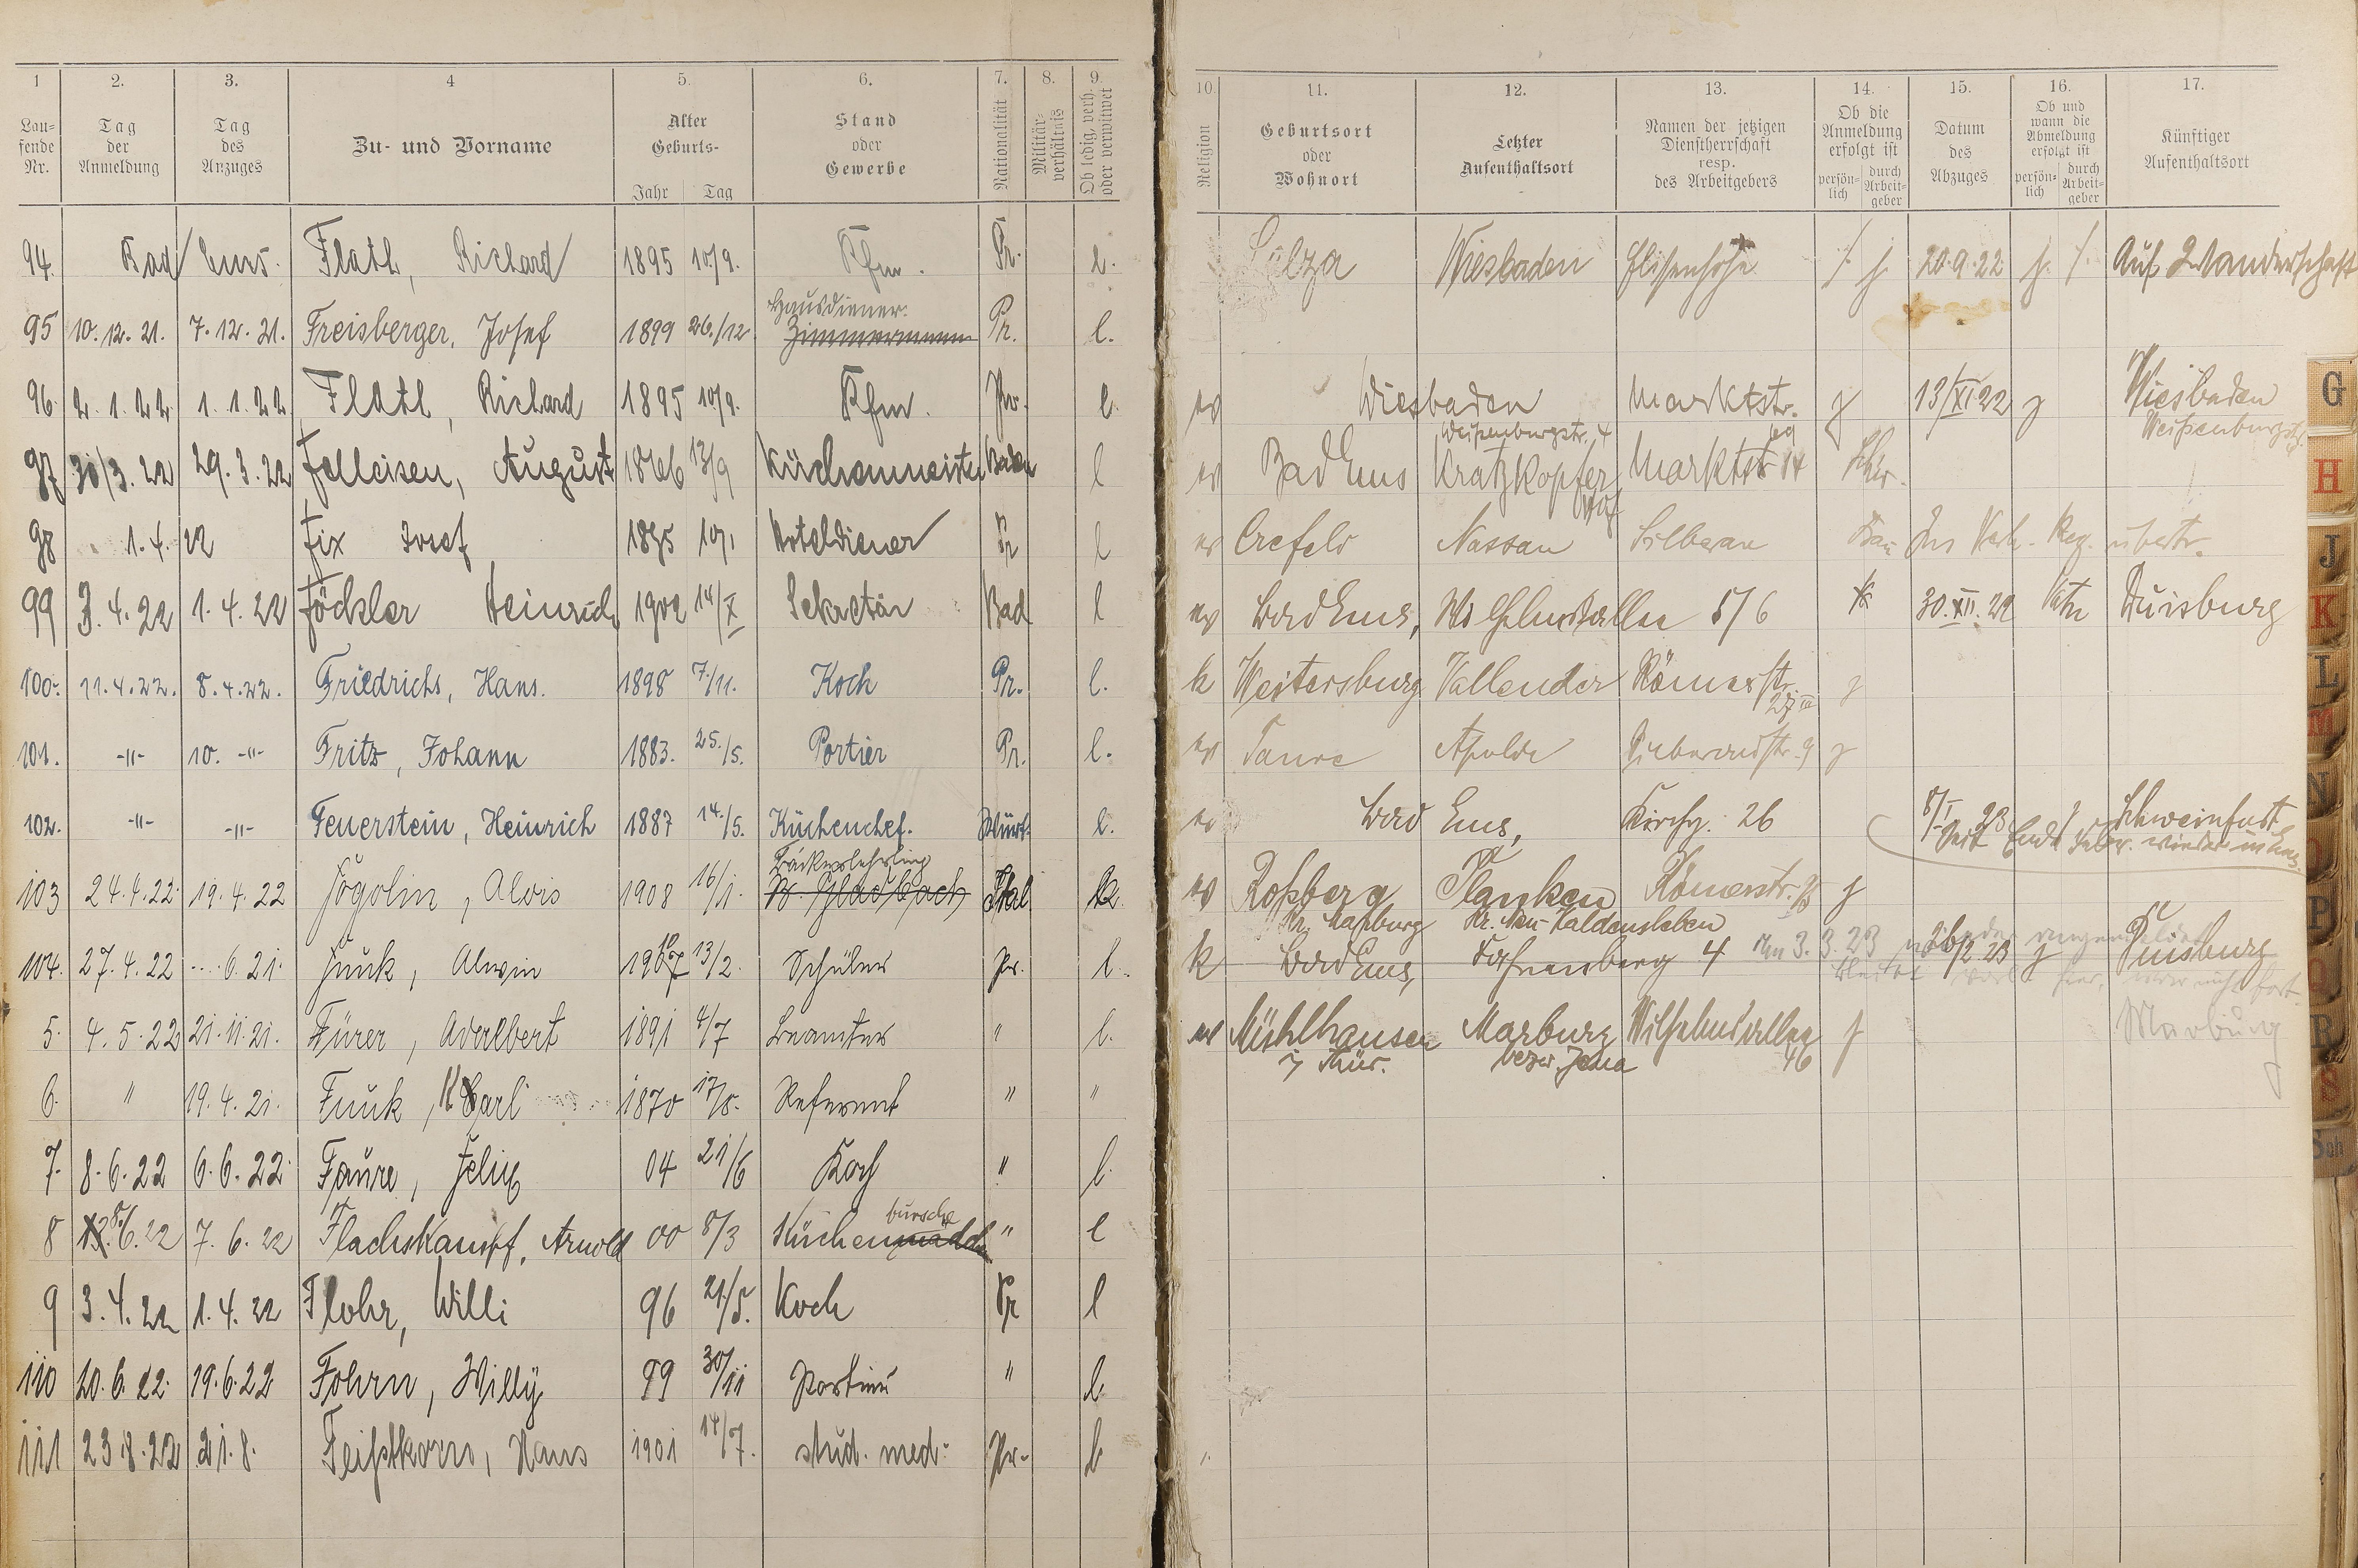 1 2. 3. 4 5. 6. 7. 8. 9.
Lau-
fende
Nr.
Tag
der
Anmeldung
Tag
des
Anzuges
Zu- und Vorname
Alter
Geburts-
Jahr Tag
Stand
oder
Gewerbe
Nationalität
Militär-
verhältnis
Ob ledig, verh.
oder verwitwet
94. Bad Ems. Flath, Richard 1895 10/9. Kfm. Pr. l.
Hausdiener.
95 10.12.21. 7.12.21. Freisberger, Josef 1899 26./12 Zimmermann Pr. l.
96. 2.1.22 1.1.22 Flath, Richard 1895 10/9. Kfm. Pr. l.
97 30/3.22 29.3.22 Felleisen, August 1866 13/9 Küchenmeister Baden l
98 1.4.22 Fix Josef 1895 10/1 Hoteldiener Pr l
99 3.4.22 1.4.22 Föckler Heinrich 1902 14/X Sekretär Bad l
100. 11.4.22. 8.4.22. Friedrichs, Hans. 1898 7./11. Koch Pr. l.
101. -"- 10. -"- Fritz, Johann 1883. 25./5. Portier Pr. l.
102. -"- -"- Feuerstein, Heinrich 1887 14./5. Küchenchef. Würt. l.
Bäckerlehrling
103 24.4.22. 19.4.22 Fogolin, Alois 1908 16/1. Ital
104. 27.4.22 6.21. Funk, Alwin 1907 13/2. Schüler Pr. l.
5. 4.5.22 21.11.21. Fürer, Adalbert 1891 4/7 Beamter " l.
6. " 19.4.21. Funk, Karl 1870 17/8. Referent " "
7. 8.6.22 6.6.22. Faure, Felix 04 21/6 Koch " l.
bursche
8 8/6.22 7.6.22 Flachskampf, Arnold 00 8/3 Küchen " l
9 3.4.22 1.4.22 Flohr, Willi 96 21/5. Koch Pr l
110 20.6.22. 19.6.22 Fohrn, Willy 99 30/11 Portier " l.
111 23.8.22 21.8. Feistkorn, Hans 1901 14/7. stud. med. Pr. l.
10. 11. 12. 13. 14. 15. 16. 17.
Religion
Geburtsort
oder
Wohnort
Letzter
Aufenthaltsort
Namen der jetzigen
Dienstherrschaft
resp.
des Arbeitgebers
Ob die
Anmeldung
erfolgt ist
persön-
lich
durch
Arbeit-
geber
Datum
des
Abzuges
Ob und
wann die
Abmeldung
erfolgt ist
persön-
lich
durch
Arbeit-
geber
Künftiger
Aufenthaltsort
Salza Wiesbaden Elisenhöhe 20.9.22 Auf Wanderschaft
ev Wiesbaden Marktstr. 13/XI 22 Wiesbaden
Weißenburgstr. 4 Weißenburgstr.
ev Bad Ems Kratzkopfer Marktstr
Hof
ev Crefeld Nassau Silberau übertr.
ev Bad Ems, Wilhelmsallee 5/6 30.XII.22 Duisburg
k Weitersburg Vallendar Römerstr.
ev Apolda
ev Bad Ems, Kirchg. 26 8/I 23 Schweinfurt
Seit Ende Febr. wieder in Ems
ev Planken Römerstr.
Kr. Neu-Haldensleben
k Bad Ems, 4 3.3.23 Duisburg
ev Mühlhausen Marburg Wilhelmsallee Marburg
i. Thür. bezw. Jena 46
G
H
J
K
L
M
N
O
P
Q
R
S
Sch